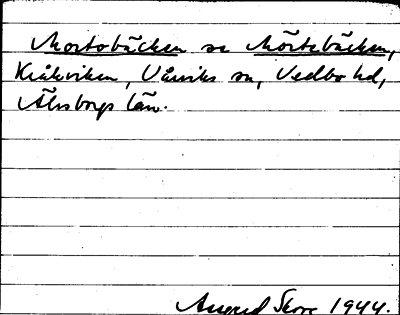 Mortobäcken se Mörtebäcken,
Kråkviken, Vårviks sn, Vedbo hd,
Älvsborgs län.
1944.